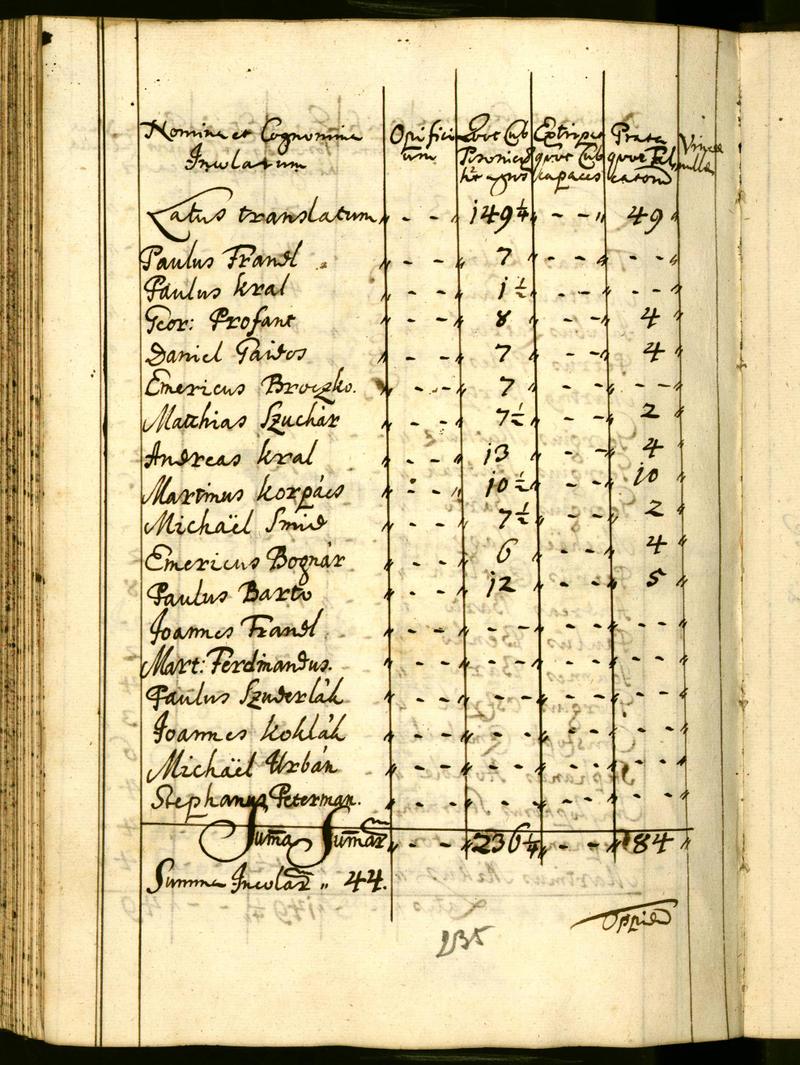 Nomina et Cognomina Incolarum Opifici um Quot Cub Posoniens Extirpa quot Cub capaces Prata quot Fal catorū Vinea nulla
Latus translatum " - - " 149 1/4 " - - " 49 "
Paulus Frandl " - - " 7 " - - " - - "
Paulus Kral " - - " 1 1/2 " - - " - - "
Geor: Profant " - - " 8 " - - " 4 "
Daniel Gaidos " - - " 7 " - - " 4 "
Emericus Broczko. " - - " 7 " - - " - - "
Matthias Szuchár " - - " 7 1/2 " - - " 2 "
Andreas Kral " - - " 13 " - - " 4 "
Martinus Korpács " - - " 10 1/2 " - - " 10 "
Michaël Smid " - - " 7 1/2 " - - " 2 "
Emericus Bognár " - - " 6 " - - " 4 "
Paulus Barto " - - " 12 " - - " 5 "
Joannes Frandl " - - " - - " - - " - - "
Mart: Ferdinandus. " - - " - - " - - " - - "
Paulus Szuderlák " - - " - - " - - " - - "
Joannes Koklák " - - " - - " - - " - - "
Michaël Urbán " - - " - - " - - " - - "
Stephanus Peterman. " - - " - - " - - " - - "
Suma Sumar " - - " 236 1/4 " - - " 84 "
Summa Incolar " 44.
Oppid
235